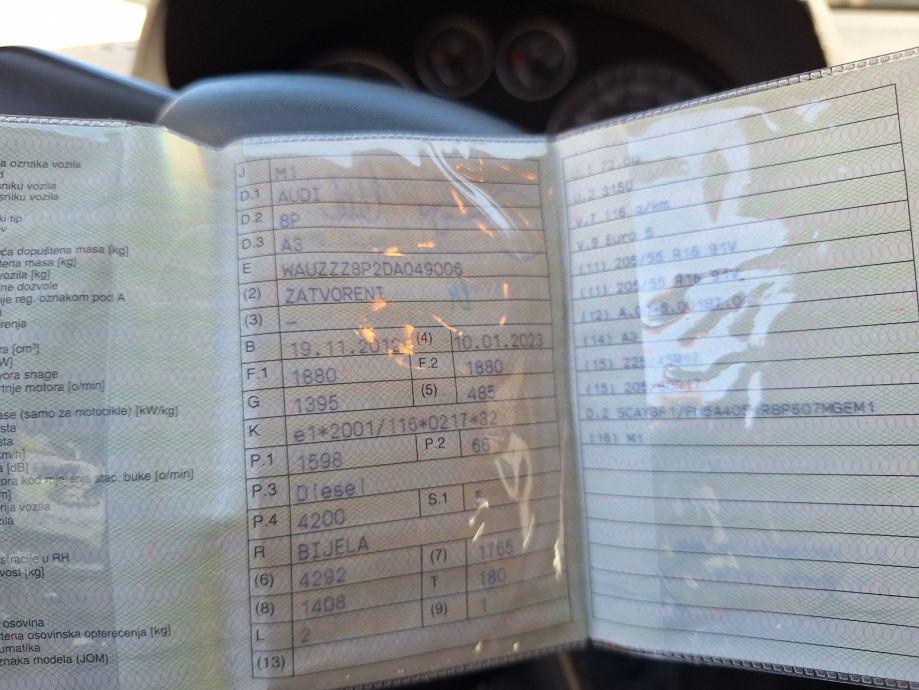 a oznaka vozila
sniku vozila
sniku vozila
ki tip
ća dopuštena masa [kg]
tena masa [kg]
vozila [kg]
ne dozvole
ije reg. oznakom pod A
renja
ra [cm³]
W]
vora snage
rtnje motora [o/min]
ase (samo za motocikle) [kW/kg]
sta
sta
km/h]
a [dB]
tora kod mjerenja stac. buke [o/min]
m]
rija vozila
zila
stracije u RH
vosi [kg]
osovina
štena osovinska opterećenja [kg]
umatika
znaka modela (JOM)
J M1
D.1 AUDI
D.2 8P
D.3 A3
E WAUZZZ8P2DA049006
(2) ZATVORENI
(3) –
B 19.11.2012 (4) 10.01.2023
F.1 1880 F.2 1880
G 1395 (5) 485
K e1*2001/116*0217*32
P.1 1598 P.2 66
P.3 Diesel
P.4 4200 S.1 5
R BIJELA
(6) 4292 (7) 1765
(8) 1408 T 180
L 2 (9) 1
(13)
u.1 72.0
u.2 3150
V.7 116 g/km
V.9 Euro 5
(11) 205/55 R16 91V
(11) 205/55 R16 91V
(12)
(14) A3
(15)
(15)
D.2
(16) M1